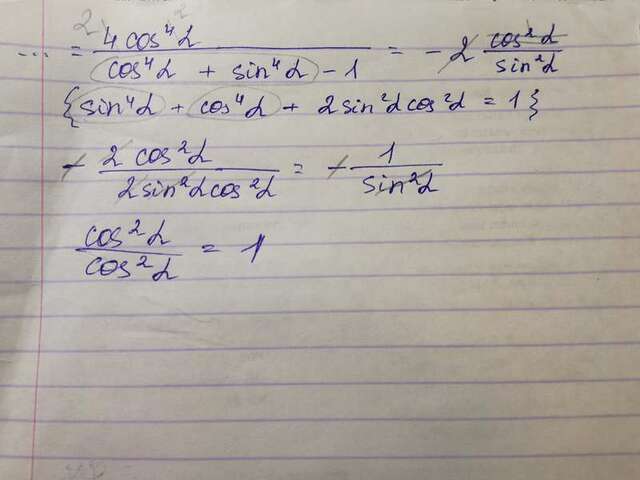 ... = 4cos⁴α / (cos⁴α + sin⁴α - 1) = - 2 cos²α / sin²α
{sin⁴α + cos⁴α + 2sin²αcos²α = 1}
- 2cos²α / 2sin²αcos²α = - 1 / sin²α
cos²α / cos²α = 1